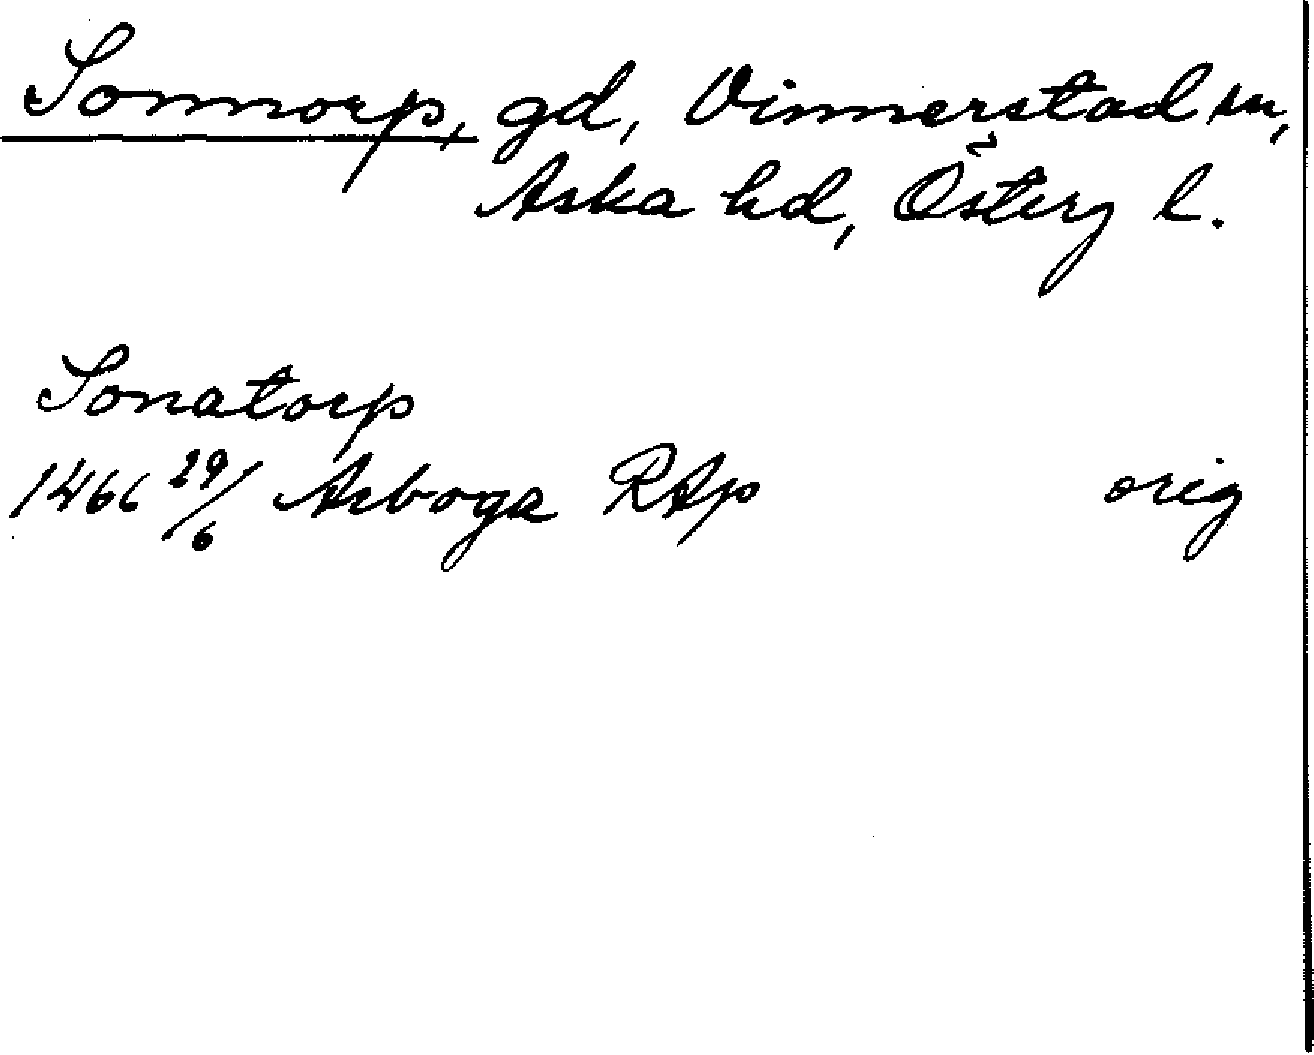 Sonnorp, gd, Vinnerstad sn,
Aska hd, Österg l.
Sonatorp
1466 29/6 Arboga RAp orig